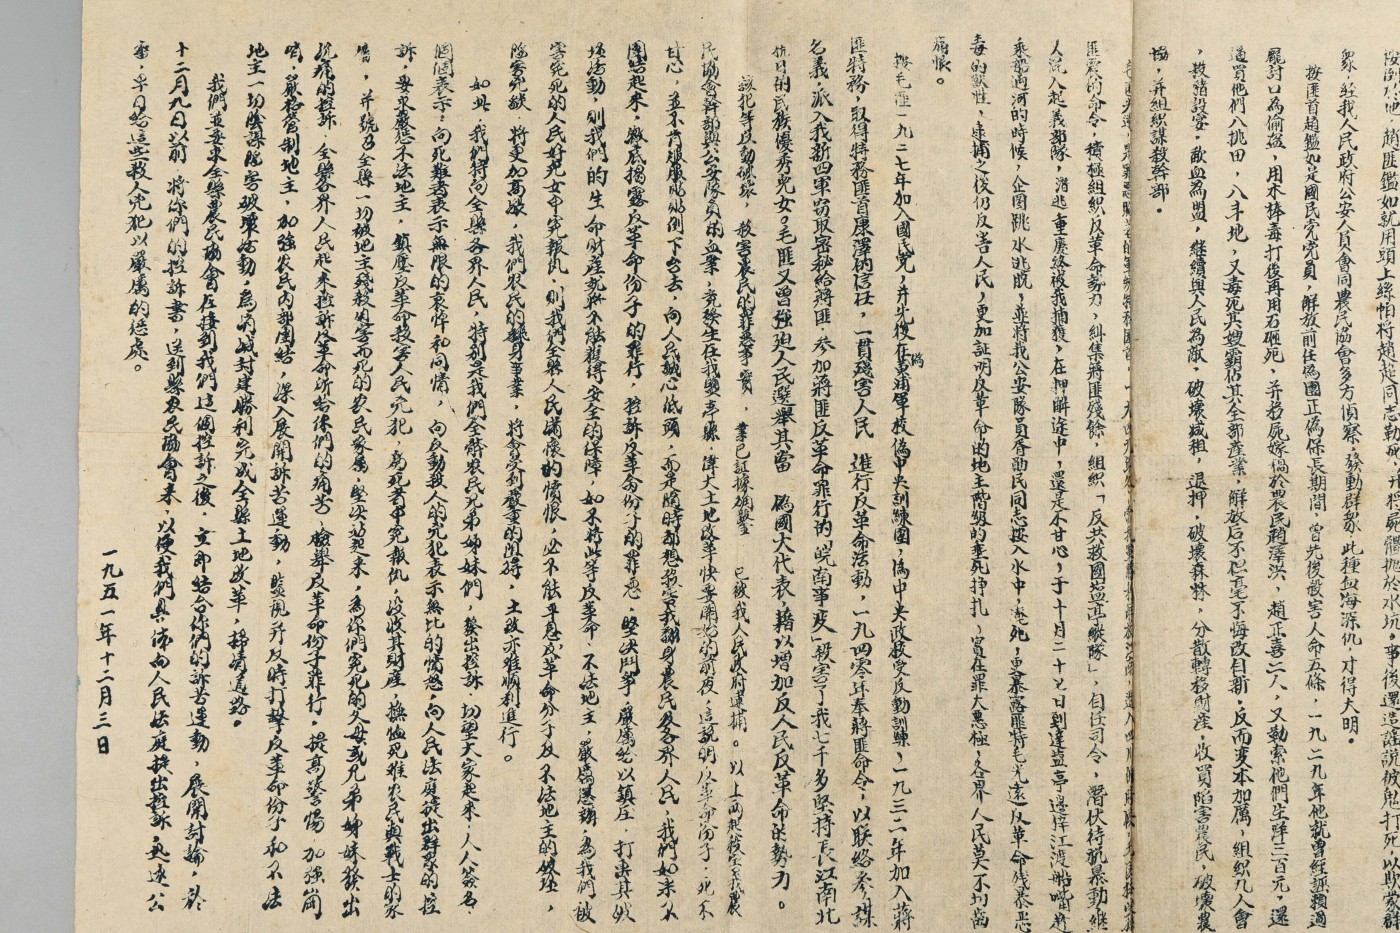 衆，經我人民政府公安人員會同農民協會多方偵察，發動群衆，此種血海深仇，才得大明。
按匪首趙鑑如是國民党党員，解放前任偽國正偽保長期間，曾先後殺害人命五條，一九二九年他就曾經誣賴過
羅討口為偷盜，用木棒毒打後再用石砸死，并移屍嫁禍於農民趙澤洪，趙正喜二人，又勒索他們生洋三百元，還
過買他們八挑田，八斗地，又毒死其嫂霸佔其全部産業，解放后不但毫不悔改自新，反而変本加厲，組織九人會
，殺猪設宴，歃血為盟，継續與人民為敵，破壞减租，退押，破壞森林，分散轉移財産，收買陷害農民，破壞農
協，并組織謀殺幹部。
匪震的命令，積極組織反革命勢力，糾集蔣匪殘餘，組織「反共救國鹽亭縱隊」，自任司令，潛伏待机暴動継
人混入起義部隊，潛逃重慶終被我捕獲，在押解途中，還是不甘心，于十月二十七日到達鹽亭邊梓江渡船嘴趕
乘船过河的時候，企图跳水逃脱，並将我公安隊員香勋民同志按入水中，淹死，更暴露匪特毛光遠反革命残暴恶
毒的獸性，逮捕之後仍反害人民，更加証明反革命的地主階級的垂死掙扎，實在罪大惡極，各界人民莫不切齒
痛恨。
按毛匪一九二七年加入國民党，并先後在偽黄浦軍校偽中央訓練團，偽中央政校受反動訓練，一九三二年加入蔣
匪特務，取得特務匪首康澤的信任，一貫殘害人民，進行反革命活動，一九四零年奉蔣匪命令，以联絡参謀
名義，派入我新四軍窃取密秘給蔣匪，参加蔣匪反革命罪行的「皖南事変」殺害了我七千多堅持長江南北
抗日的民族優秀児女。毛匪又曾强迫人民選舉其當　偽國大代表，藉以增加反人民反革命的势力。
該犯等反動破壞，殺害農民的罪惡事實，業已証據確鑿　已被我人民政府逮捕。以上两起殺害我農
民協會幹部與公安隊員的血案，竟發生在我縣幸臨，偉大土地改革快要開始的前夜，這說明反革命份子，死不
甘心，並不肯服服贴贴倒下去，向人民誠心低頭，而是隨時都想殺害我翻身農民及各界人民，我們如果不
團結起来，徹底揭露反革命份子的罪行，控訴反革命份子的罪惡，堅決鬥爭，嚴厲給以鎮压，打击其破
壞活動，則我們的生命財産就斷不能獲得安全的保障，如不将此等反革命，不法地主，嚴厲惩辦，為我們被
害冤死的人民好児女申冤報仇，則我們全縣人民满懷的憤恨，必不能平息反革命分子及不法地主的破坏，
陰害死談，将更加高漲，我們农民的翻身事業，将會受到嚴重的阻碍，土改亦难順利進行。
如此，我們特向全縣各界人民，特别是我們全縣农民兄弟姊妹們，發出控訴，切望大家起来，人人簽名，
個個表示：向死难者表示無限的哀悼和同情，向反動殺人的兇犯表示無比的憤怒，向人民法庭提出群衆的控
訴，要求嚴惩不法地主，鎮壓反革命殺害人民兇犯，為死者申冤報仇，没收其財産，撫恤死难农民與戰士的家
屬，并號召全縣一切被地主殘殺迫害而死的农民家屬，堅决站起来，為你們冤死的父母或兄弟姊妹發出
沉痛的控訴，全縣各界人民起来控訴反革命所給你們的痛苦，檢舉反革命份子罪行，提高警惕，加強崗
哨，嚴格管制地主，加強农民内部團結，深入展開訴苦運動，監視并及時打擊反革命份子和不法
地主一切陰謀陷害破壞活動，為消滅封建勝利完成全縣土地改革，掃清道路。
我們並要求全縣農民協會在接到我們這個控訴之後，立即結合你們的訴苦運動，展開討論，於
十二月九日以前，将你們的控訴書，送到縣农民協會来，以便我們具体向人民法庭提出控訴，迅速公
審，予日給這些殺人兇犯以嚴厲的惩處。
一九五一年十二月三日